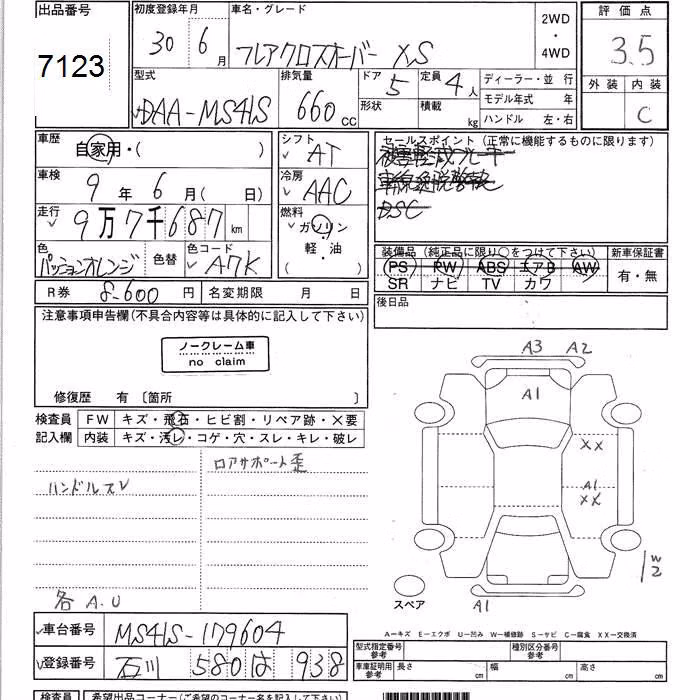 出品番号
7123
初度登録年月
30 6月
車名・グレード
フレアクロスオーバー XS
2WD
・
4WD
評価点
3.5
外装 内装
C
型式
DAA-MS41S
排気量
660 cc
ドア 5
形状
定員 4人
積載 kg
ディーラー・並 行
モデル年式 年
ハンドル 左・右
車歴
自家用・( )
車検
9年 6月 ( 日)
走行
9万7千687 km
色
パッションオレンジ
色替
色コード
A7K
シフト
AT
冷房
AAC
燃料
ガソリン
軽・油
( )
セールスポイント (正常に機能するものに限ります)
被害軽減ブレーキ
車線逸脱警報
DSC
装備品 (純正品に限り○をつけて下さい)
PS PW ABS エアB AW
SR ナビ TV カワ
新車保証書
有・無
R券 8-600 円
名変期限 月 日
後日品
注意事項申告欄(不具合内容等は具体的に記入して下さい)
ノークレーム車
no claim
修復歴 有 〔箇所 〕
検査員
記入欄
FW キズ・飛石・ヒビ割・リペア跡・×要
内装 キズ・汚レ・コゲ・穴・スレ・キレ・破レ
ロアサポート歪
ハンドルスレ
各 A.U
A3 A2
A1
XX
A1
XX
W2
A1
スペア
A-キズ E-エクボ U-凹み W-補修跡 S-サビ C-腐食 XX-交換済
車台番号 MS41S-179604
登録番号 石川 580 は 938
型式指定番号
参考
種別区分番号
参考
車庫証明用
参考
長さ cm 幅 cm 高さ cm
検査員 希望出品コーナー(ご希望のコーナー名を記入して下さい)